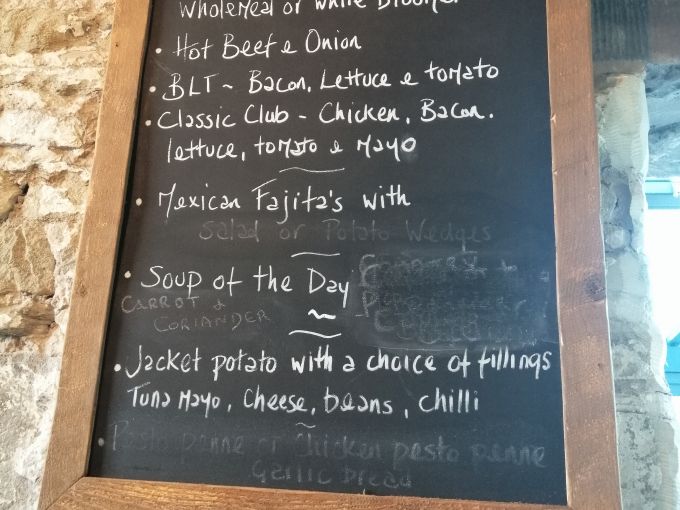 Wholemeal or White Bloomer
• Hot Beef & Onion
• BLT ~ Bacon, Lettuce & tomato
• Classic Club - Chicken, Bacon.
lettuce, tomato & Mayo
• Mexican Fajita's with
Salad or Potato Wedges
• Soup of the Day
CARROT &
CORIANDER
• Jacket potato with a choice of fillings
Tuna Mayo, Cheese, beans, chilli
• Pesto penne or Chicken pesto penne
Garlic bread